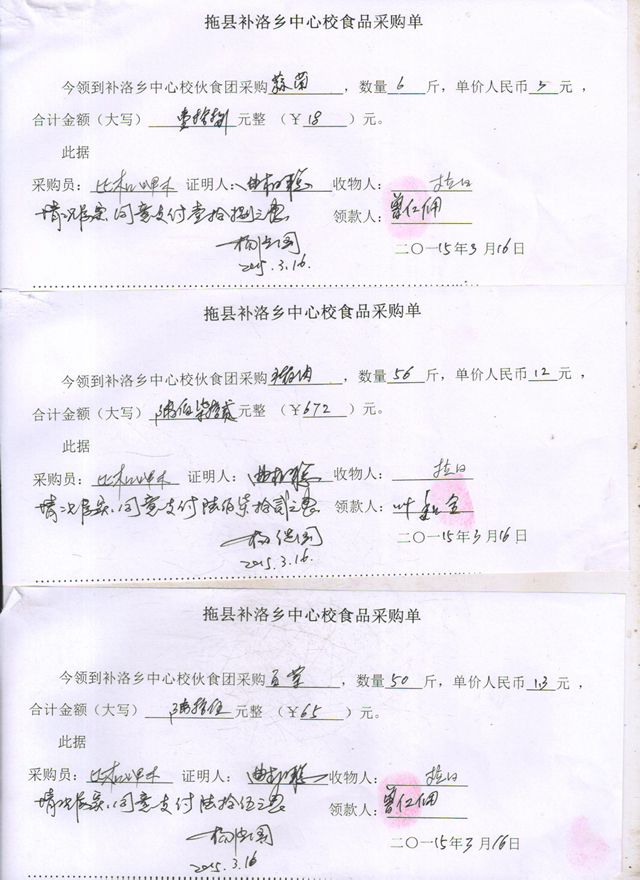 拖县补洛乡中心校食品采购单
今领到补洛乡中心校伙食团采购蒜苗，数量6斤，单价人民币 元，
合计金额（大写）壹拾捌元整（￥18）元。
此据
采购员： 证明人： 收物人：拉日
情况属实，同意支付壹拾捌元整 领款人：曾仁佣
2015.3.16. 二〇一15年3月16日
拖县补洛乡中心校食品采购单
今领到补洛乡中心校伙食团采购 ，数量56斤，单价人民币12元，
合计金额（大写）陆佰柒拾贰元整（￥672）元。
此据
采购员： 证明人： 收物人：拉日
情况属实，同意支付陆佰柒拾贰元整 领款人：叶
2015.3.16. 二〇一15年3月16日
拖县补洛乡中心校食品采购单
今领到补洛乡中心校伙食团采购 ，数量50斤，单价人民币1.3元，
合计金额（大写）陆拾伍元整（￥65）元。
此据
采购员： 证明人： 收物人：拉日
情况属实，同意支付陆拾伍元整 领款人：曾仁佣
2015.3.16 二〇一15年3月16日